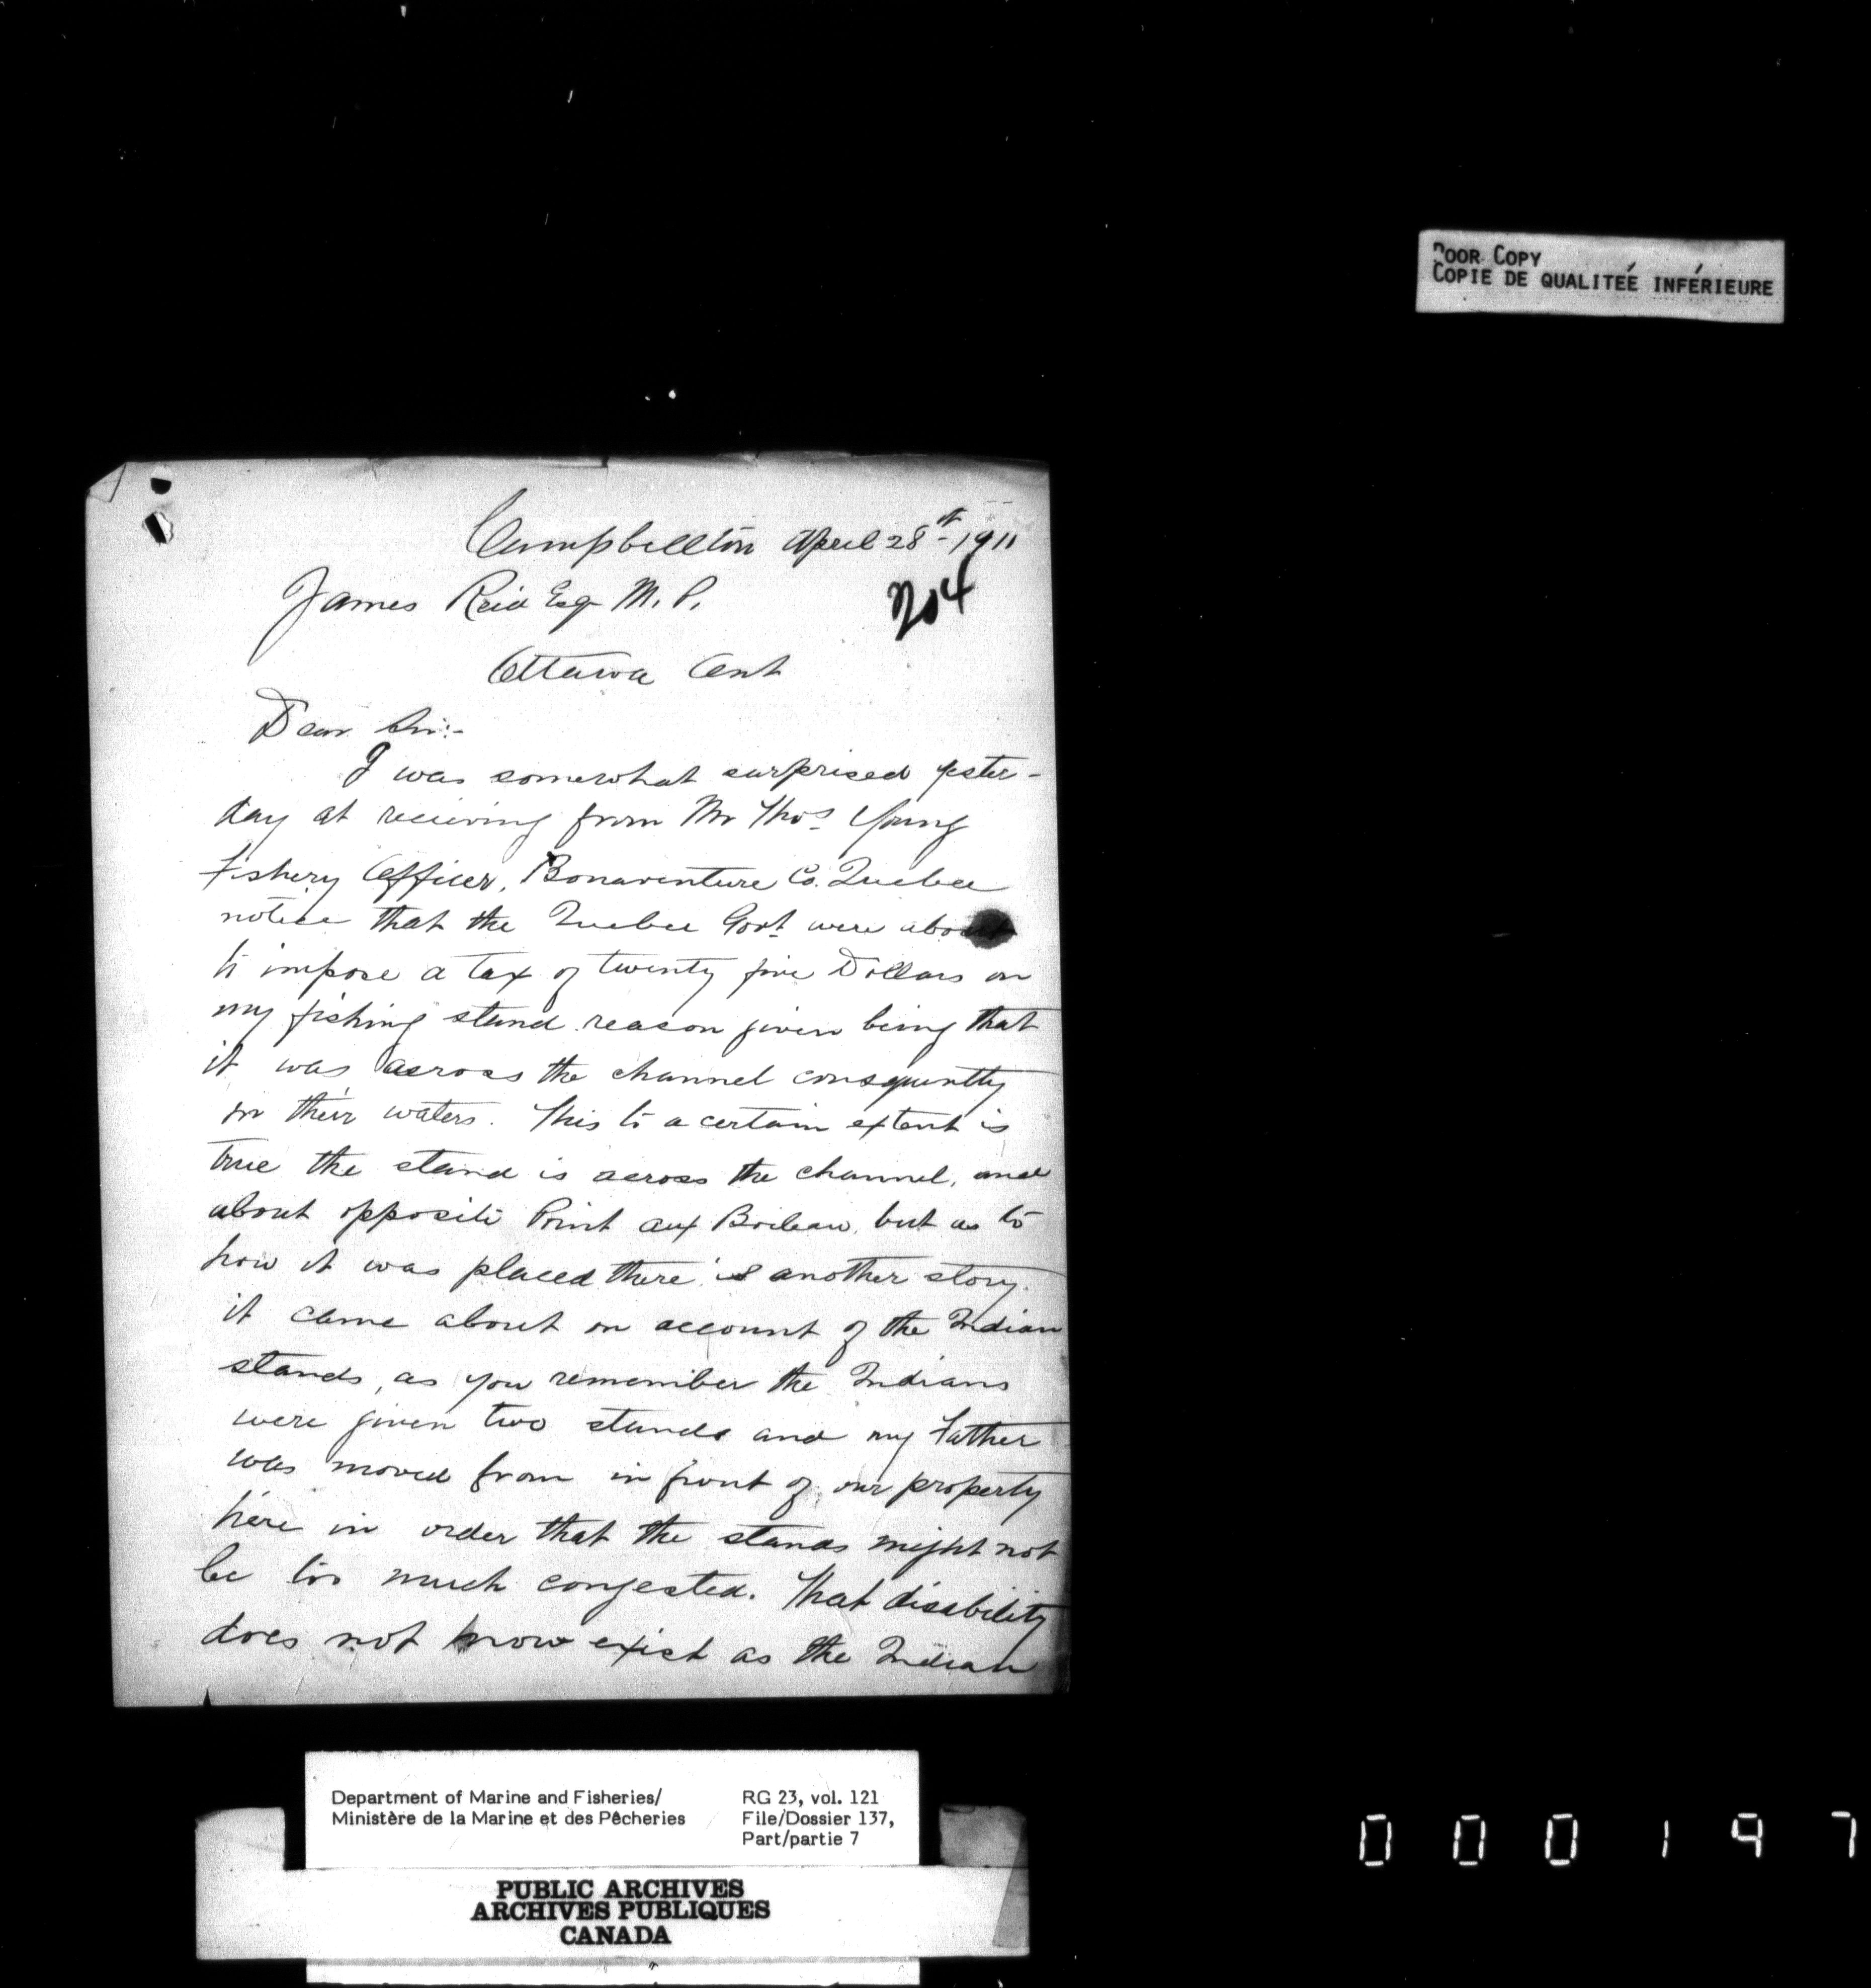 POOR COPY
COPIE DE QUALITEÉ INFÉRIEURE
Campbellton April 28th 1911
204
James Reid Esq M. P.
Ottawa Ont
Dear Sir:-
I was somewhat surprised yester-
day at recieving from Mr Thos. Young
Fishery Officer, Bonaventure Co. Quebec
notice that the Quebec Govt were about
to impose a tax of twenty five Dollars on
my fishing stand. reason given being that
it was across the channel consquently
in their waters. This to a certain extent is
true the stand is across the channel, and
about opposite Point aux Bordeau, but as to
how it was placed there is another story.
it came about on account of the Indian
stands, as you remember the Indians
were given two stands and my Father
was moved from in front of our property
here in order that the stands might not
be too much congested. That disability
does not now exist as the Indian
Department of Marine and Fisheries/
Ministère de la Marine et des Pêcheries
RG 23, vol. 121
File/Dossier 137,
Part/partie 7
PUBLIC ARCHIVES
ARCHIVES PUBLIQUES
CANADA
000197